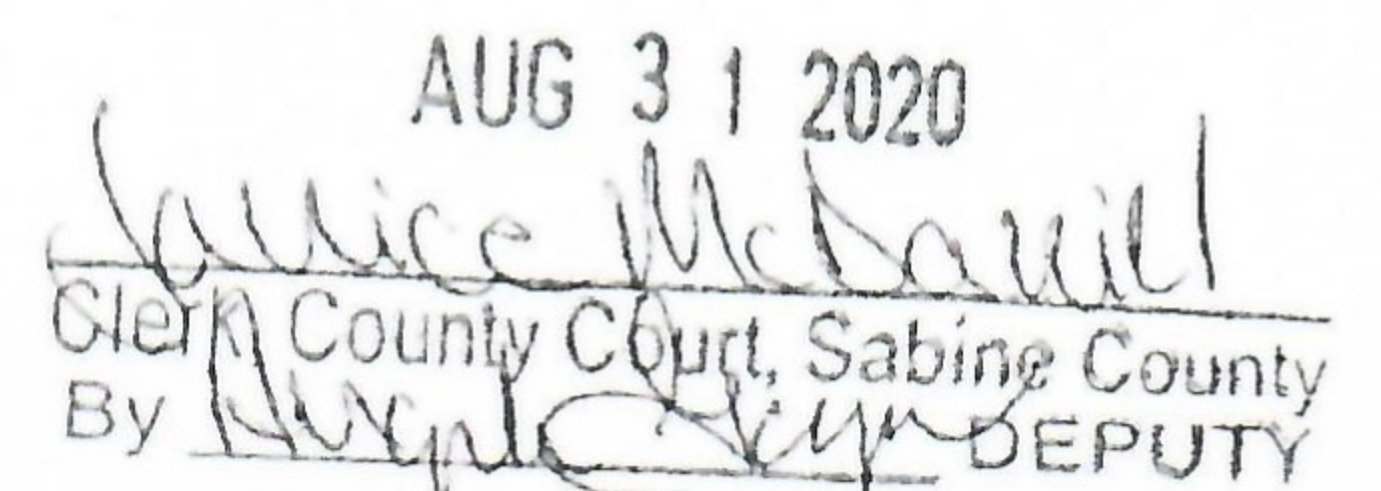 AUG 3 1 2020
Janice McDaniel
Clerk County Court, Sabine County
By DEPUTY